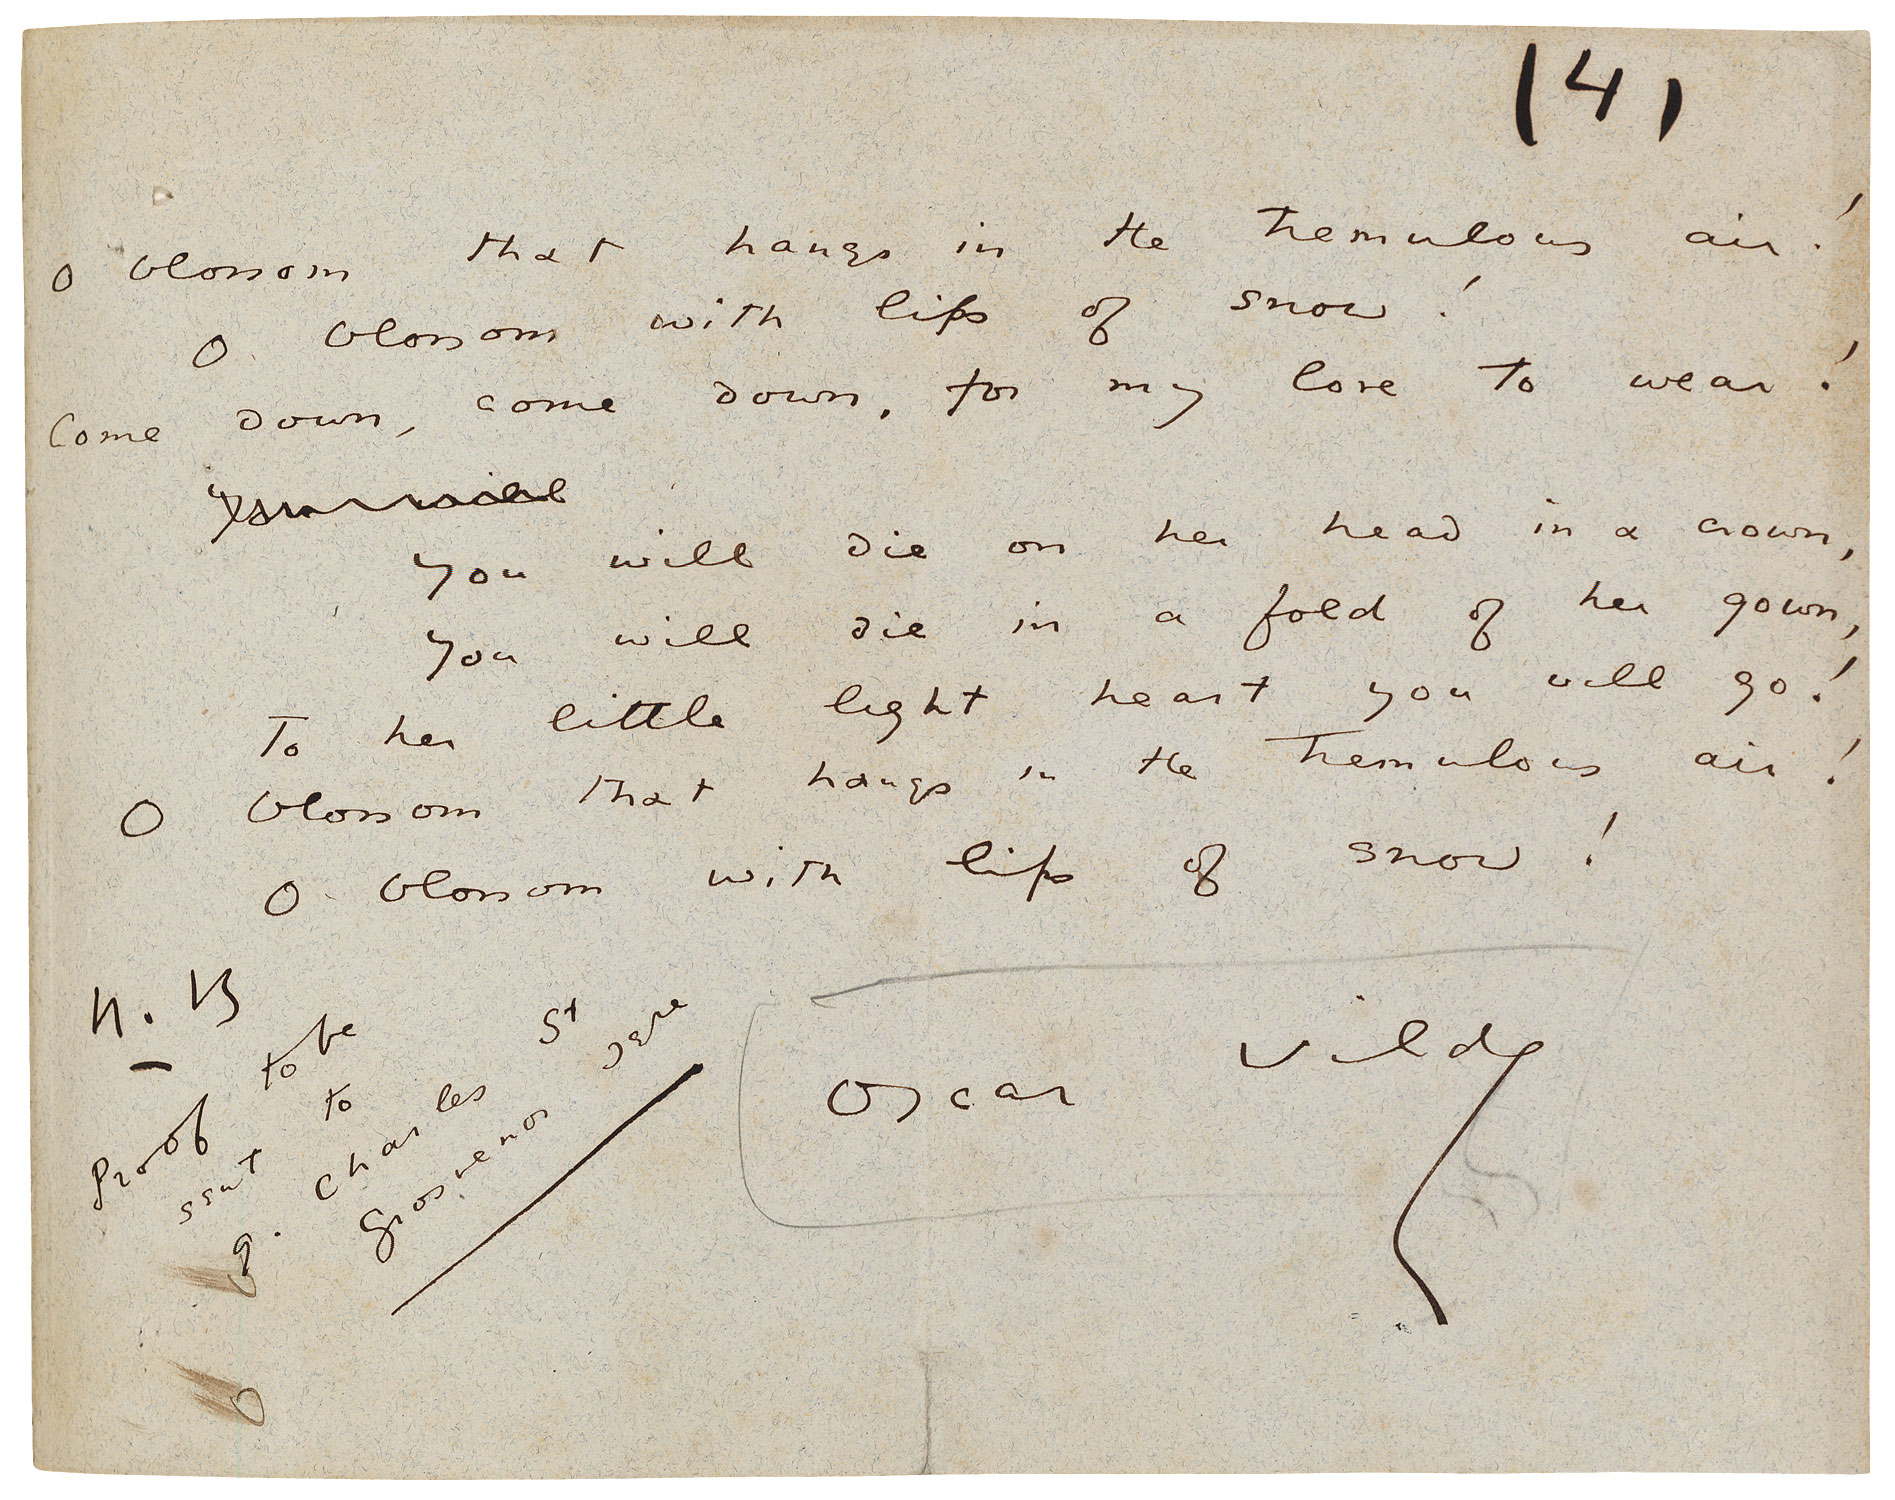 (4)
O blossom that hangs in the tremulous air!
O blossom with lips of snow!
Come down, come down, for my love to wear!
You will
You will die on her head in a crown,
You will die in a fold of her gown,
To her little light heart you will go!
O blossom that hangs in the tremulous air!
O blossom with lips of snow!
N. B
Proof to be
sent to
9. Charles St
Grosvenor Sqre
Oscar Wilde